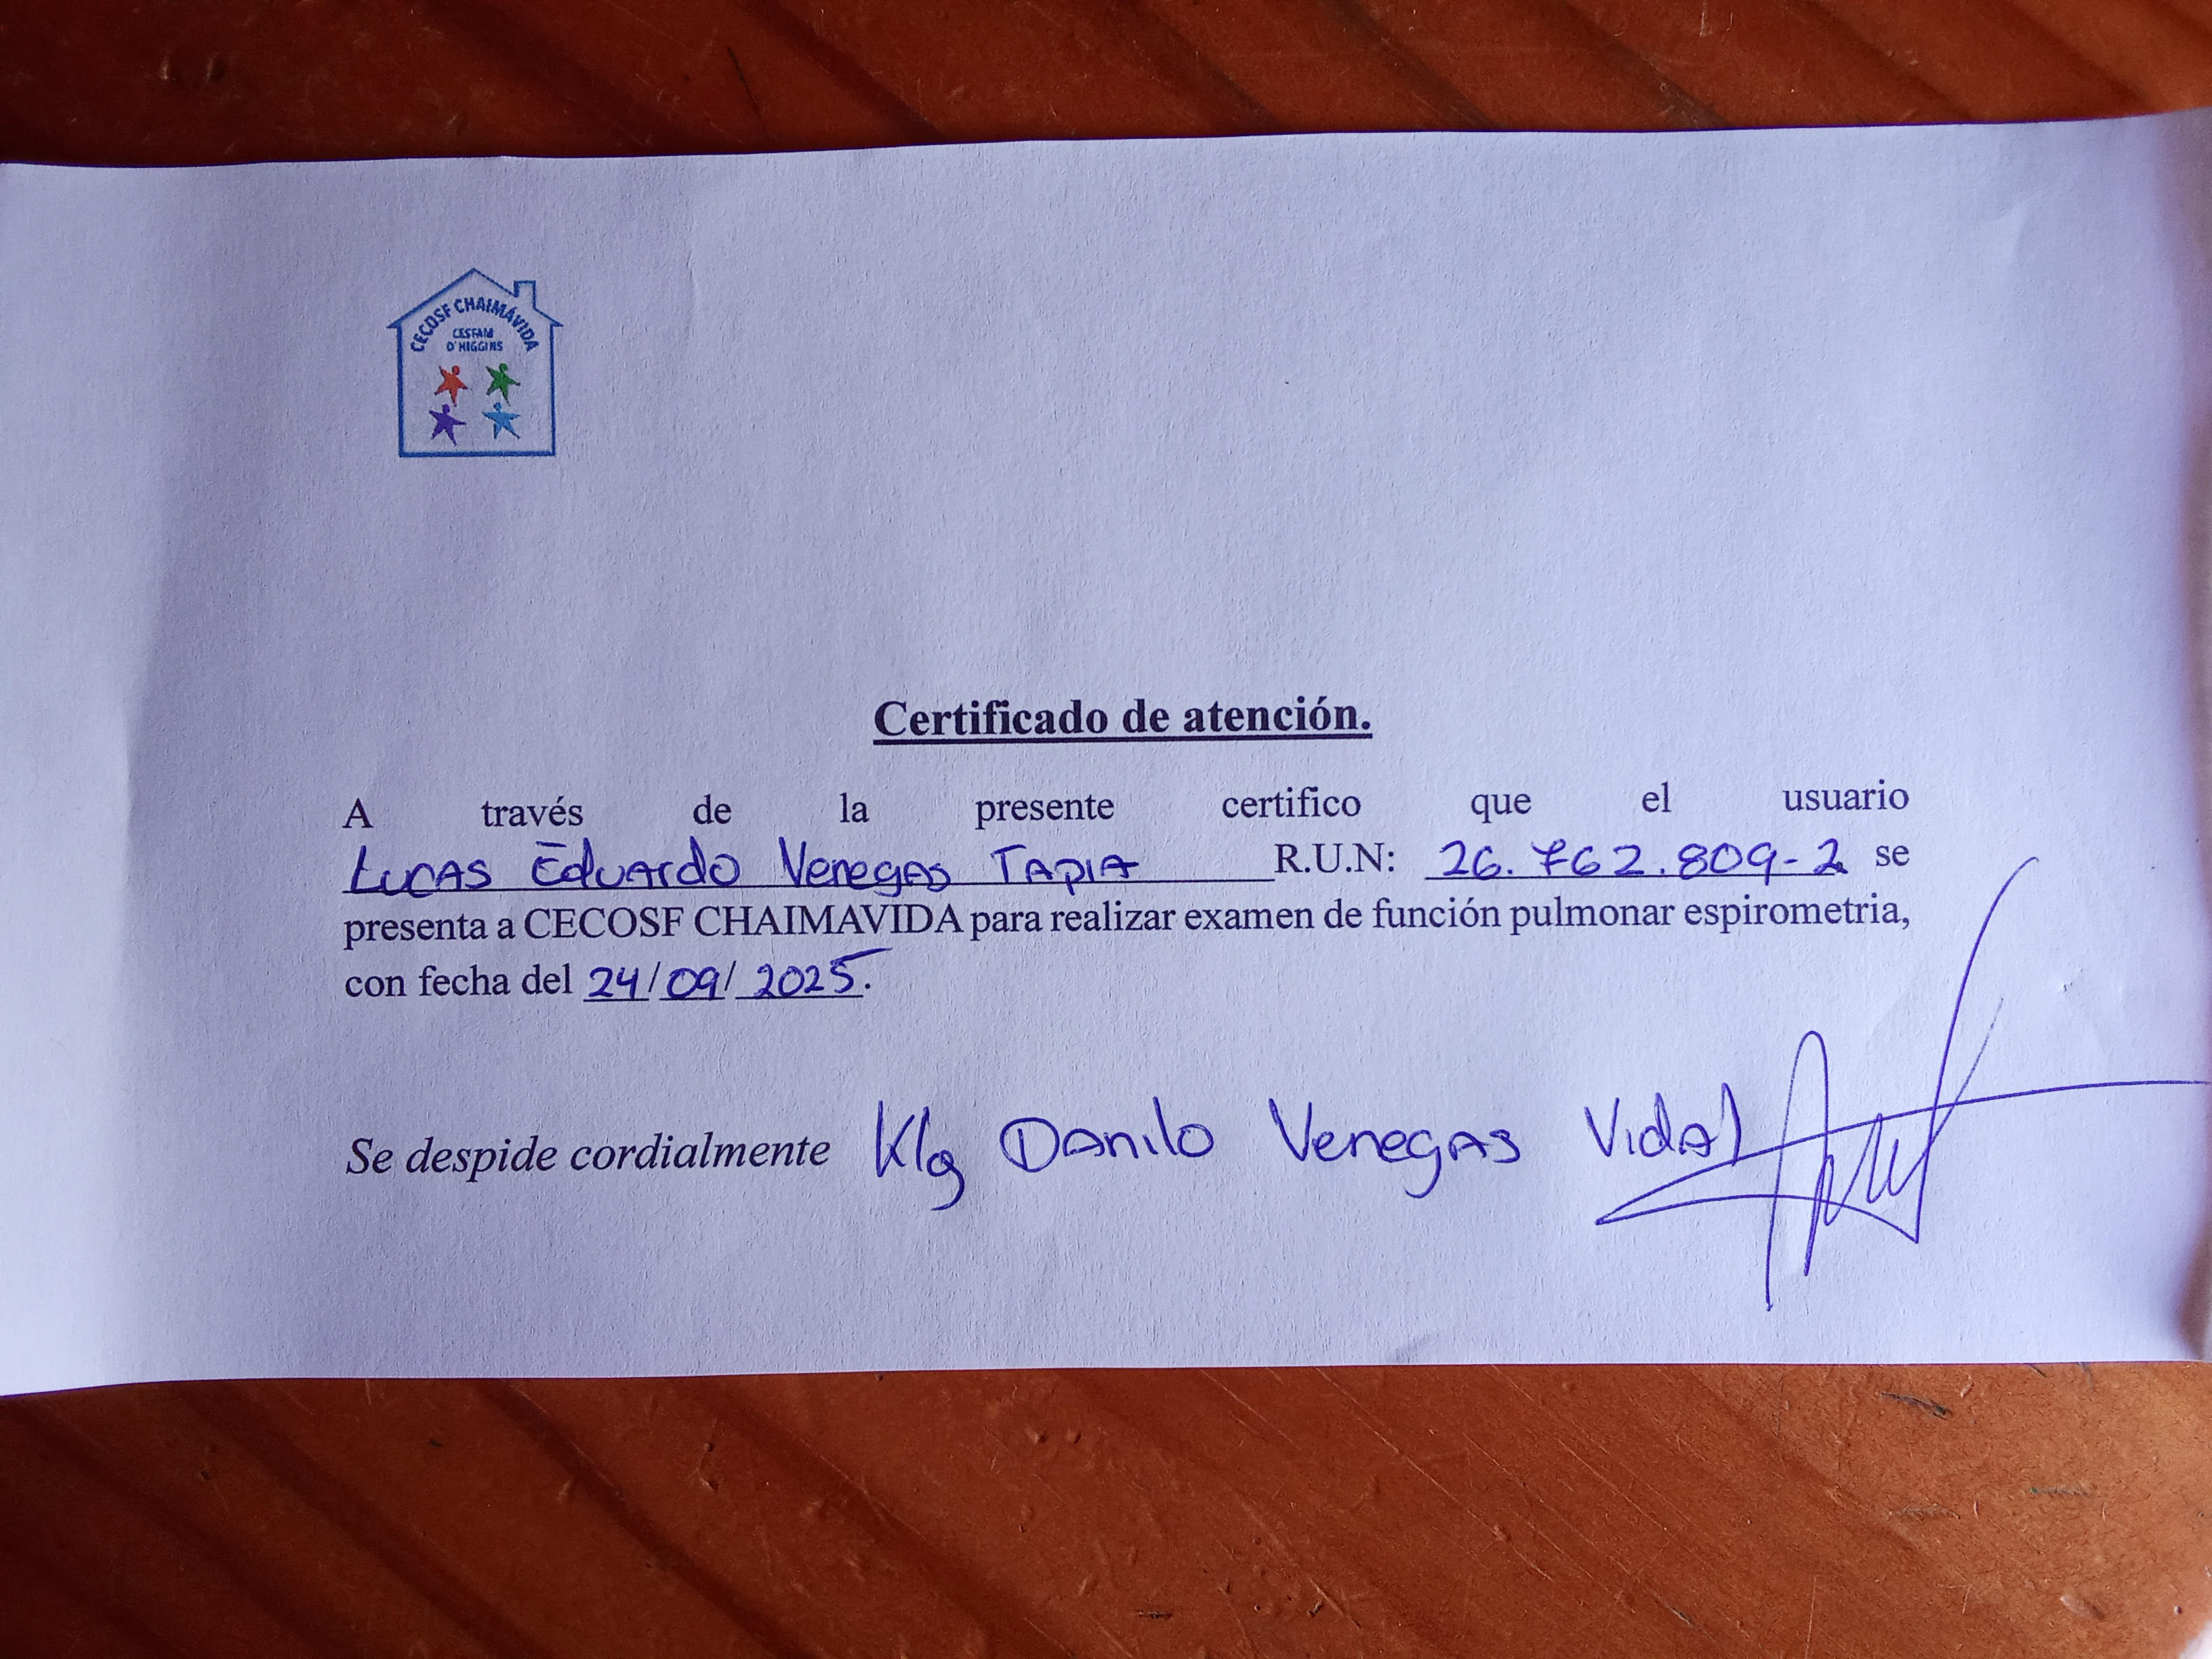 CECOSF CHAIMÁVIDA
CESFAM
O'HIGGINS
Certificado de atención.
A través de la presente certifico que el usuario
Lucas Eduardo Venegas Tapia R.U.N: 26.762.809-2 se
presenta a CECOSF CHAIMAVIDA para realizar examen de función pulmonar espirometria,
con fecha del 24/09/2025.
Se despide cordialmente Klg Danilo Venegas Vidal